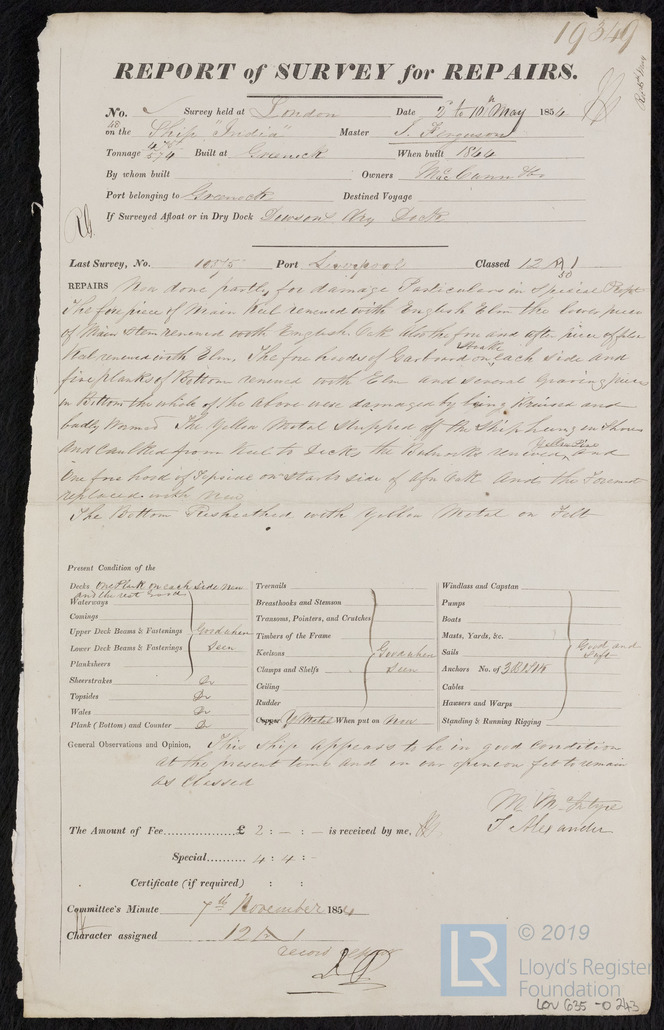 19349
REPORT of SURVEY for REPAIRS.
No. Survey held at London Date 2nd to 10th May 1854
on the Ship "India" Master J. Ferguson
Tonnage 574 Built at Greenock When built 1844
By whom built Owners
Port belonging to Greenock Destined Voyage
If Surveyed Afloat or in Dry Dock Dawsons Dry Dock
Last Survey, No. 1055 Port Liverpool Classed 12 A 1
REPAIRS Now done partly for damage Particulars in Special Rept
The fore piece of Main Keel renewed with English Elm the lower piece
of Main Stem renewed with English Oak also the fore and after piece of false
Keel renewed with Elm. The fore hoods of Garboard Strake on each side and
five planks of Bottom renewed with Elm and several Graving pieces
in Bottom the whole of the above were damaged by being and
badly Wormed The Yellow Metal stripped off the Ship hung in Shores
and Caulked from Keel to Decks the Bulwarks renewed Yellow Pine and
One fore hood of Topside on Starbd side of Afn Oak and the Foremast
replaced with New
The Bottom Resheathed with Yellow Metal on Felt
Present Condition of the
Decks One Plank on each Side New and the rest Good
Waterways
Comings
Upper Deck Beams & Fastenings Good when
Lower Deck Beams & Fastenings Seen
Planksheers
Sheerstrakes Do
Topsides Do
Wales Do
Plank (Bottom) and Counter Do
Treenails
Breasthooks and Stemson
Transoms, Pointers, and Crutches
Timbers of the Frame
Keelsons Good when
Clamps and Shelfs Seen
Ceiling
Rudder
Copper Y Metal When put on Now
Windlass and Capstan
Pumps
Boats
Masts, Yards, &c.
Sails Good and
Anchors No. of
Cables
Hawsers and Warps
Standing & Running Rigging
General Observations and Opinion, This Ship appears to be in good Condition
at the present time and in our opinion fit to remain
as Classed
M McIntyre
T Alexander
The Amount of Fee £ 2 : - : - is received by me,
Special 4 : 4 : -
Certificate (if required) : :
Committee's Minute 7th November 1854
Character assigned 12 A 1
© 2019
LR
Lloyd's Register
Foundation
LON 635-0243